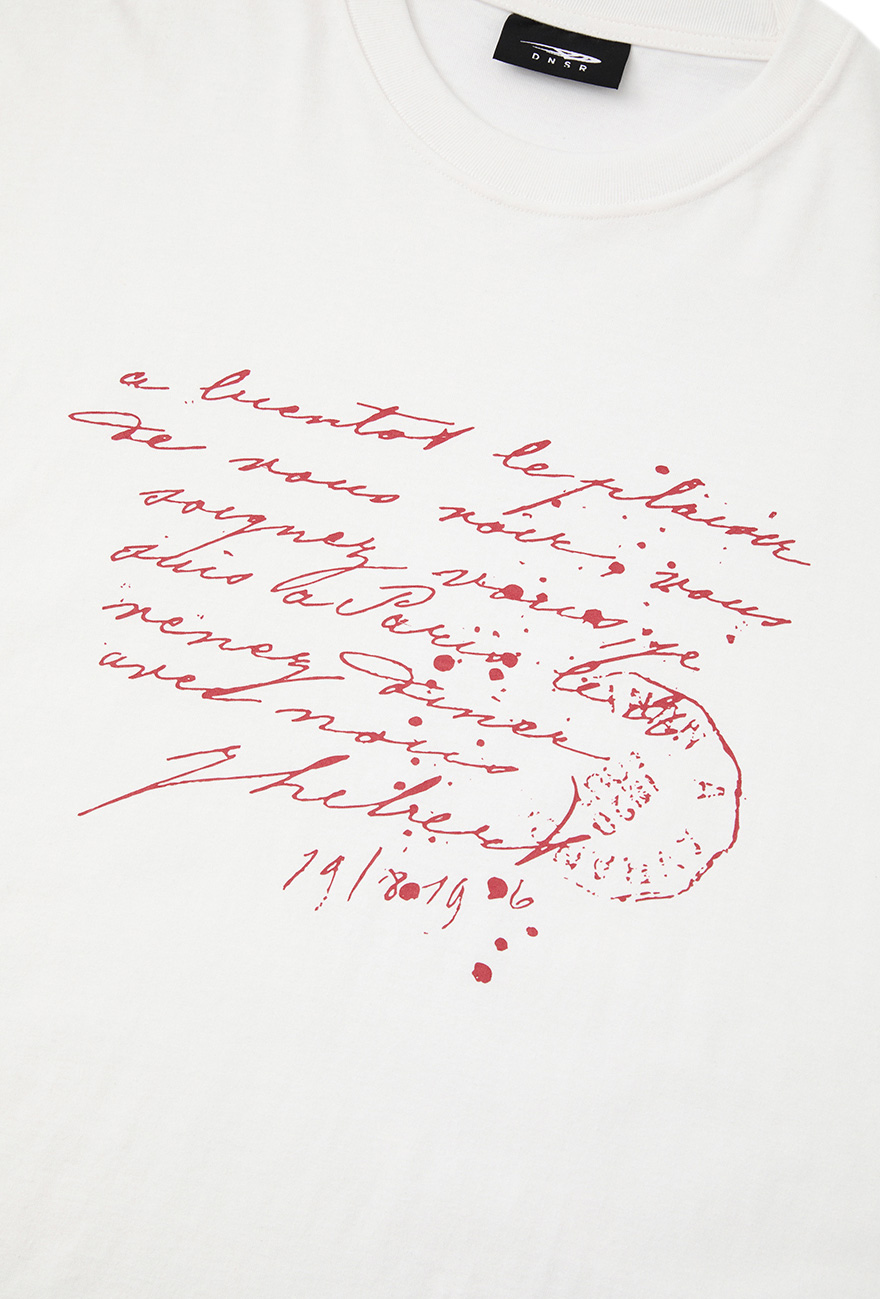 DNSR
a bientot le plaisir
de vous voir, vous
soignez vous, je
suis a Paris le
venez diner
avec nous
Thibert
19/8 19 6